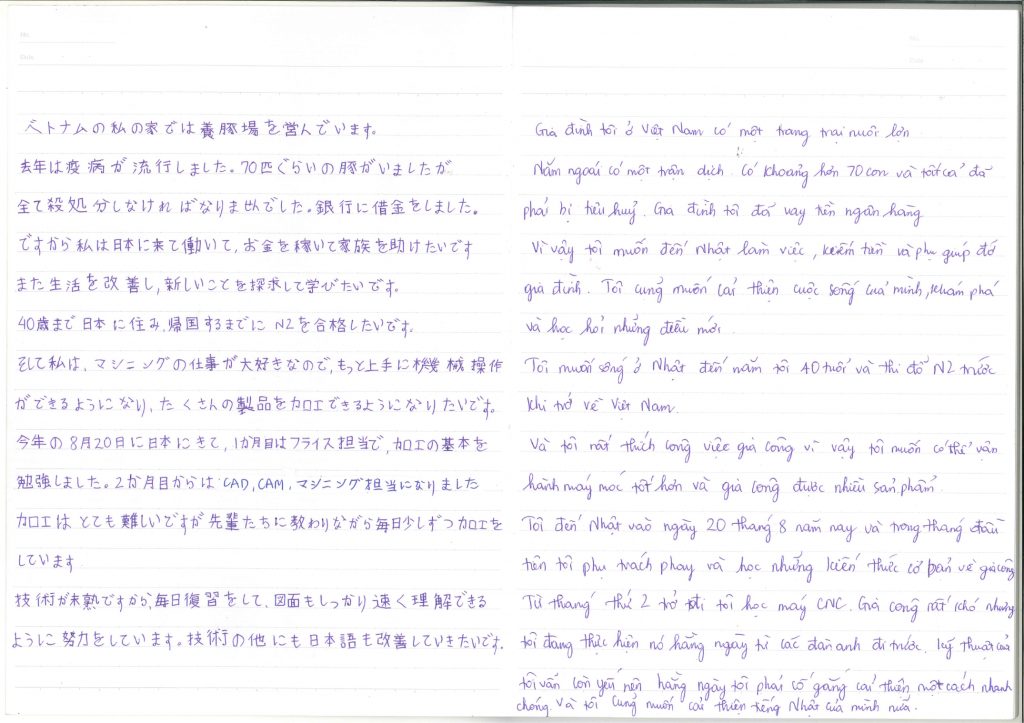 No.
Date
ベトナムの私の家では養豚場を営んでいます。
去年は疫病が流行しました。70匹ぐらいの豚がいましたが
全て殺処分しなければなりませんでした。銀行に借金をしました。
ですから私は日本に来て働いて、お金を稼いで家族を助けたいです
また生活を改善し、新しいことを探求して学びたいです。
40歳まで日本に住み、帰国するまでに N2を合格したいです。
そして私は、マシニングの仕事が大好きなので、もっと上手に機械操作
ができるようになり、たくさんの製品を加工できるようになりたいです。
今年の8月20日に日本にきて、1か月目はフライス担当で、加工の基本を
勉強しました。2か月目からは CAD, CAM, マシニング担当になりました
加工はとても難しいですが先輩たちに教わりながら毎日少しずつ加工を
しています
技術が未熟ですから、毎日復習をして、図面もしっかり速く理解できる
ように努力をしています。技術の他にも日本語も改善していきたいです。
No.
Date
Gia đình tôi ở Việt Nam có một trang trại nuôi lợn
Năm ngoái có một trận dịch. Có khoảng hơn 70 con và tất cả đã
phải bị tiêu huỷ. Gia đình tôi đã vay tiền ngân hàng
Vì vậy tôi muốn đến Nhật làm việc, kiếm tiền và phụ giúp đỡ
gia đình. Tôi cũng muốn cải thiện cuộc sống của mình, khám phá
và học hỏi những điều mới.
Tôi muốn sống ở Nhật đến năm tôi 40 tuổi và thi đỗ N2 trước
khi trở về Việt Nam.
Và tôi rất thích công việc gia công vì vậy tôi muốn có thể vận
hành máy móc tốt hơn và gia công được nhiều sản phẩm.
Tôi đến Nhật vào ngày 20 tháng 8 năm nay và trong tháng đầu
tiên tôi phụ trách phay và học những kiến thức cơ bản về gia công
Từ tháng thứ 2 trở đi tôi học máy CNC. Gia công rất khó nhưng
tôi đang thực hiện nó hằng ngày từ các đàn anh đi trước. Kỹ thuật của
tôi vẫn còn yếu nên hằng ngày tôi phải cố gắng cải thiện một cách nhanh
chóng. Và tôi cũng muốn cải thiện tiếng Nhật của mình nữa.